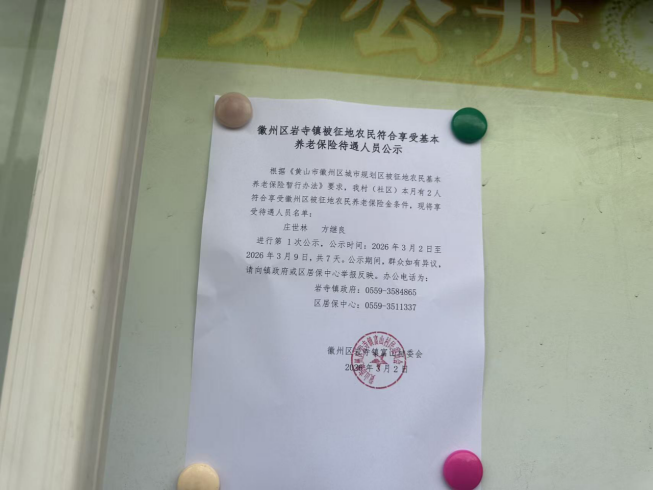 务公开
徽州区岩寺镇被征地农民符合享受基本
养老保险待遇人员公示
根据《黄山市徽州区城市规划区被征地农民基本
养老保险暂行办法》要求，我村（社区）本月有2人
符合享受徽州区被征地农民养老保险金条件，现将享
受待遇人员名单：
庄世林 方继良
进行第 1次公示，公示时间：2026年3月2日至
2026年3月9日，共7天。公示期间，群众如有异议，
请向镇政府或区居保中心举报反映。办公电话为：
岩寺镇政府：0559-3584865
区居保中心：0559-3511337
徽州区岩寺镇富山村委会
2026年3月2日